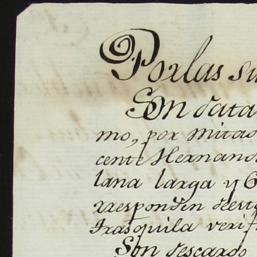 Por las su
Son data
mo, por mitad
cente Hernand
lana larga y 6
rresponden de est
trasquila verif
Son descargo